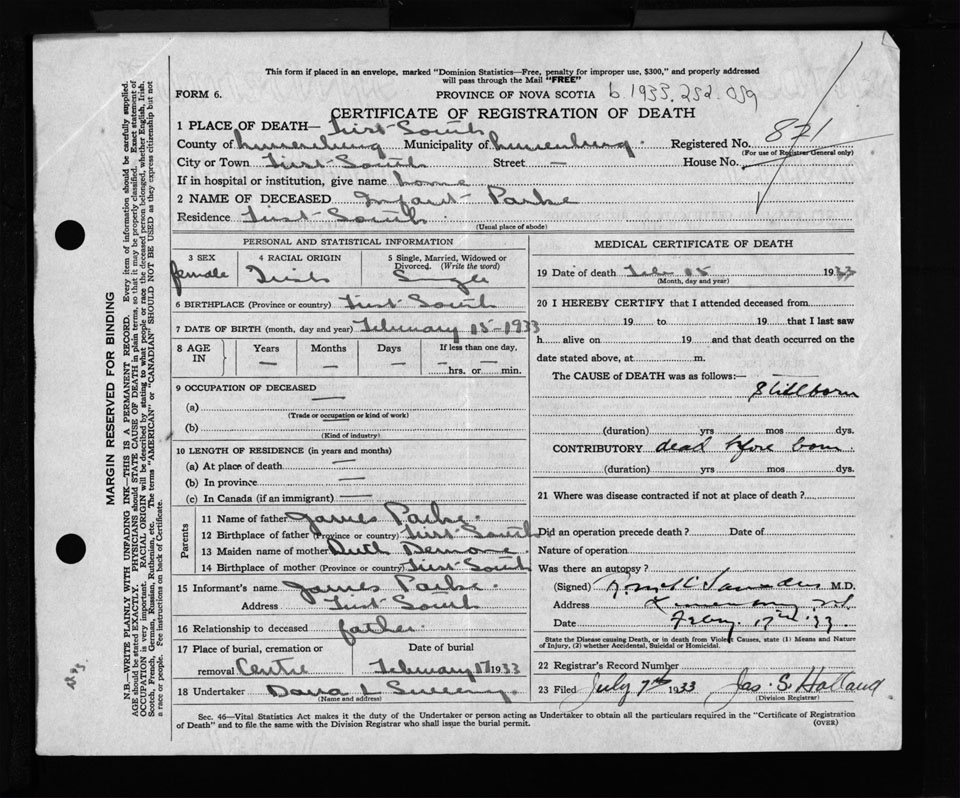 This form if placed in an envelope, marked "Dominion Statistics—Free, penalty for improper use, $300," and properly addressed
will pass through the Mail "FREE"
FORM 6.
PROVINCE OF NOVA SCOTIA b. 1933. 252. 059
CERTIFICATE OF REGISTRATION OF DEATH
1 PLACE OF DEATH— First-South
County of Lunenburg Municipality of Lunenburg. Registered No. 821
(For use of Registrar General only)
City or Town First-South Street — House No.
If in hospital or institution, give name home
2 NAME OF DECEASED Infant- Parke
Residence First-South
(Usual place of abode)
PERSONAL AND STATISTICAL INFORMATION
3 SEX
female
4 RACIAL ORIGIN
Irish
5 Single, Married, Widowed or
Divorced. (Write the word)
Single
6 BIRTHPLACE (Province or country) First-South
7 DATE OF BIRTH (month, day and year) February 15-1933
8 AGE
IN
Years
—
Months
—
Days
—
If less than one day,
— —
hrs. or min.
9 OCCUPATION OF DECEASED
—
(a)
(Trade or occupation or kind of work)
(b)
(Kind of industry)
10 LENGTH OF RESIDENCE (in years and months)
(a) At place of death —
(b) In province —
(c) In Canada (if an immigrant) —
Parents
11 Name of father James Parke.
12 Birthplace of father (Province or country) First-South
13 Maiden name of mother Ruth Demone.
14 Birthplace of mother (Province or country) First-South
15 Informant's name James Parke.
Address First-South
16 Relationship to deceased father.
17 Place of burial, cremation or
removal Centre
Date of burial
February 17 1933
18 Undertaker L Sweeny.
(Name and address)
MEDICAL CERTIFICATE OF DEATH
19 Date of death Feb 15 1933
(Month, day and year)
20 I HEREBY CERTIFY that I attended deceased from
19 to 19 that I last saw
h alive on 19 and that death occurred on the
date stated above, at m.
The CAUSE of DEATH was as follows:—
Stillborn
(duration) yrs mos dys.
CONTRIBUTORY dead before born
(duration) yrs mos dys.
21 Where was disease contracted if not at place of death?
Did an operation precede death? Date of
Nature of operation
Was there an autopsy?
(Signed) Saunders M.D.
Address Lunenburg N.S.
Date Feby. 17th '33.
State the Disease causing Death, or in death from Violent Causes, state (1) Means and Nature
of Injury, (2) whether Accidental, Suicidal or Homicidal.
22 Registrar's Record Number
23 Filed July 7th 1933 Jas. S. Holland
(Division Registrar)
Sec. 46—Vital Statistics Act makes it the duty of the Undertaker or person acting as Undertaker to obtain all the particulars required in the "Certificate of Registration
of Death" and to file the same with the Division Registrar who shall issue the burial permit. (OVER)
MARGIN RESERVED FOR BINDING
N.B.—WRITE PLAINLY WITH UNFADING INK—THIS IS A PERMANENT RECORD. Every item of information should be carefully supplied.
AGE should be stated EXACTLY. PHYSICIANS should STATE CAUSE OF DEATH in plain terms, so that it may be properly classified. Exact statement of
OCCUPATION is very important. RACIAL ORIGIN will be described by stating to what people or race the deceased person belonged, whether English, Irish,
Scotch, French, German, Russian, Ruthenian, etc. The terms "AMERICAN" or "CANADIAN" SHOULD NOT BE USED as they express citizenship but not
a race or people. Fee instructions on back of Certificate.